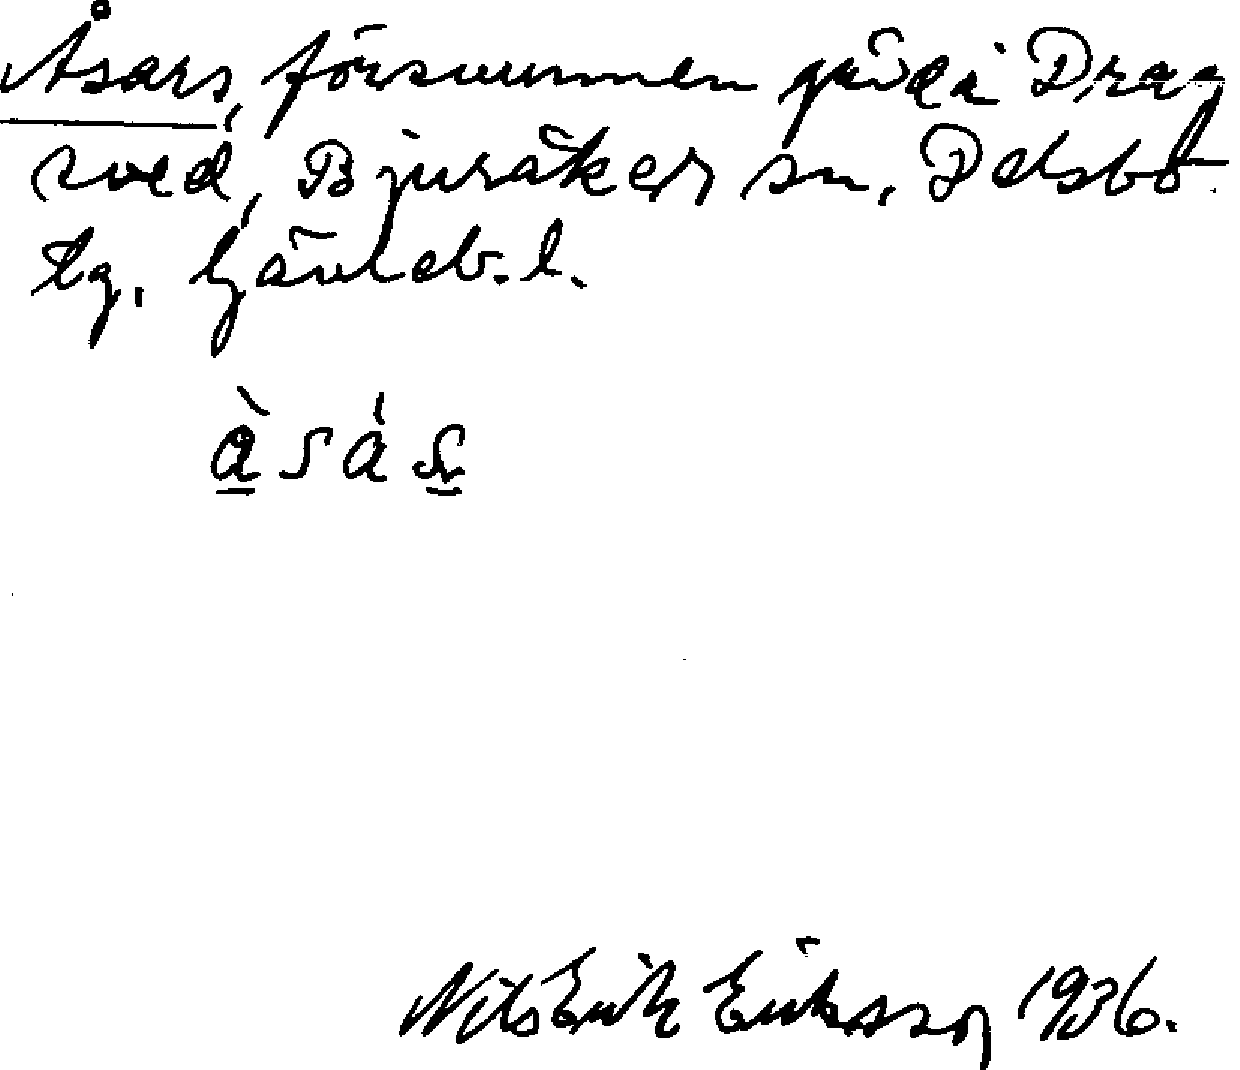 Åsars, försvunnen gård i Drag
sved, Bjuråker sn, Delsbo
tg, Gävleb. l.
Nils Erik Eriksson 1936.